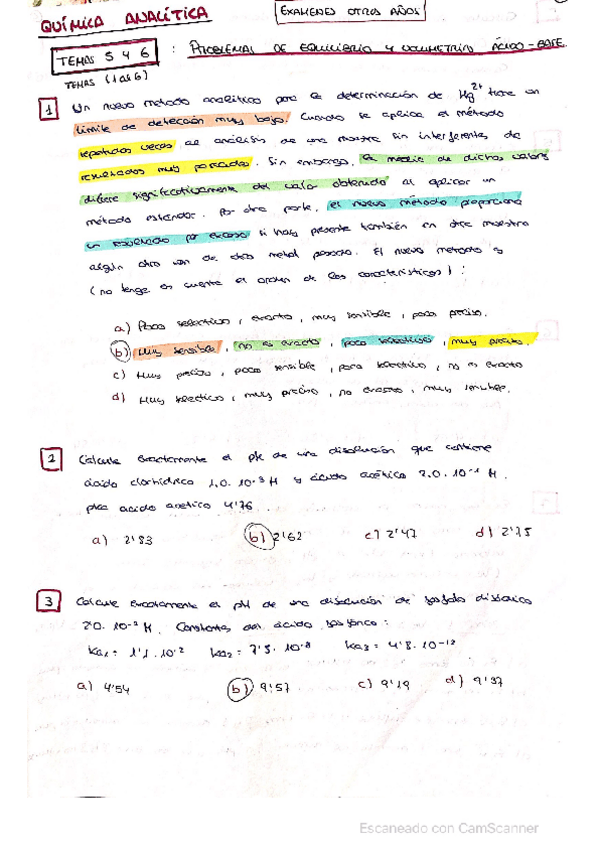 QUÍMICA ANALÍTICA
EXAMENES OTROS AÑOS
TEMAS 5 y 6 : PROBLEMAS DE EQUILIBRIO Y VOLUMETRÍAS ÁCIDO-BASE.
TEMAS (1 al 6)
1 Un nuevo método analítico para la determinación de Hg2+ tiene un
límite de detección muy bajo. Cuando se aplica el método
repetidas veces al análisis de una muestra sin interferentes da
resultados muy parecidos. Sin embargo, la media de dichos valores
difiere significativamente del valor obtenido al aplicar un
método estándar. Por otra parte, el nuevo método proporciona
un resultado por exceso si hay presente también en otra muestra
algún otro ion de otro metal pesado. El nuevo método es
(no tenga en cuenta el orden de las características):
a) Poco selectivo, exacto, muy sensible, poco preciso.
b) Muy sensible, no es exacto, poco selectivo, muy preciso.
c) Muy preciso, poco sensible, poco selectivo, no es exacto
d) Muy selectivo, muy preciso, no exacto, muy sensible.
2 Calcule exactamente el pH de una disolución que contiene
ácido clorhídrico 1,0.10-3 M y ácido acético 2.0.10-1 M.
pka acido acetico 4'76
a) 2'83 b) 2'62 c) 2'47 d) 2'75
3 Calcule exactamente el pH de una disolución de fosfato disódico
20.10-2 M. Constantes del ácido fosfórico:
ka1 = 1'1.10-2 ka2 = 7'5.10-8 ka3 = 4'8.10-13
a) 4'54 b) 9'57 c) 9'19 d) 9'37
Escaneado con CamScanner